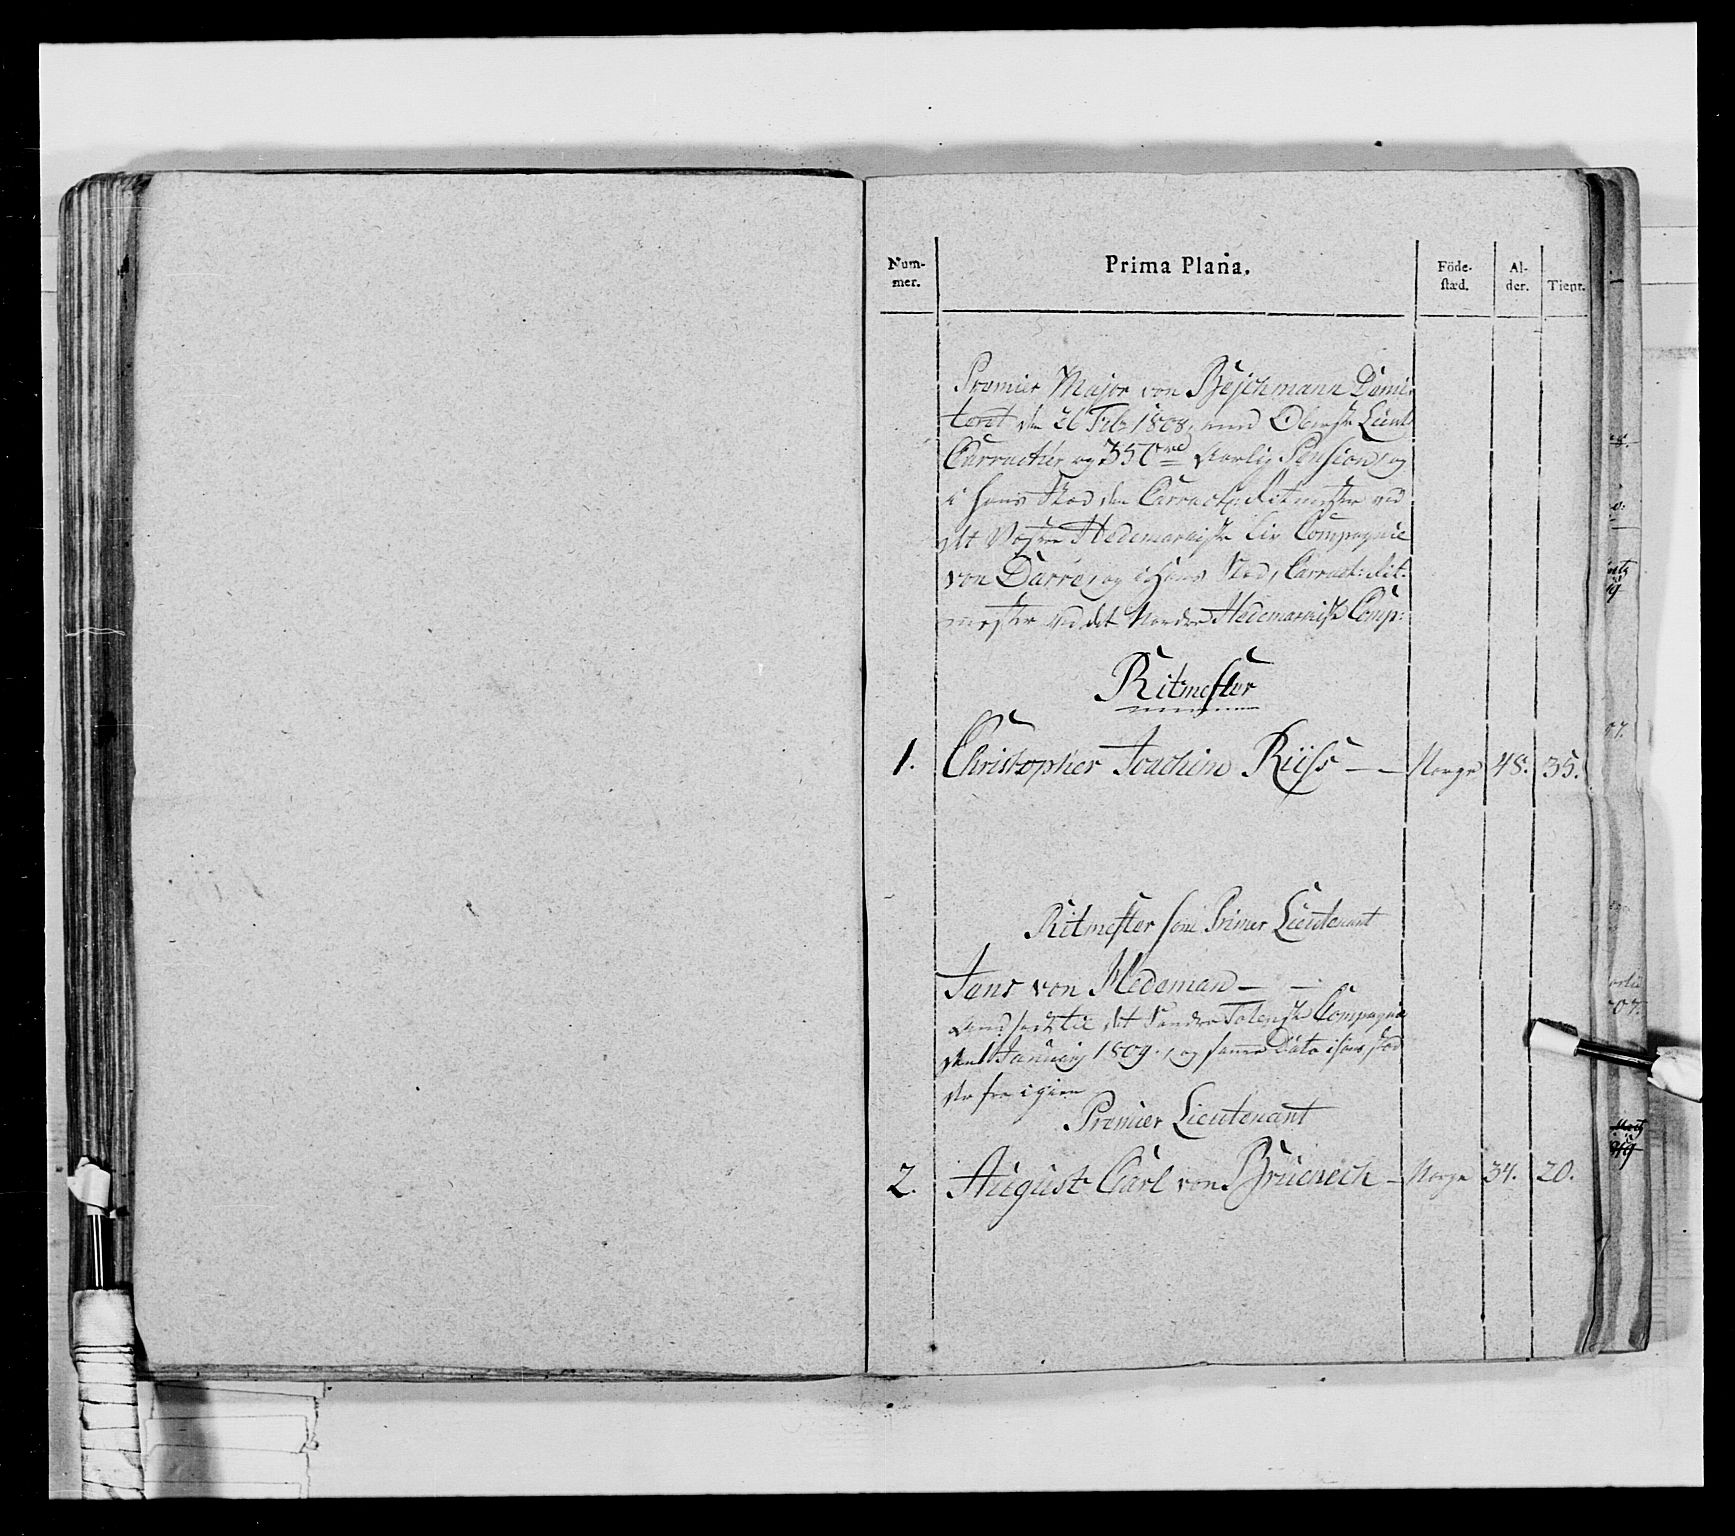 Num-
mer.
Prima Plana.
Föde-
stæd.
Al-
der.
Tient.
Premier Major von Bejchmann Dimi-
teret den 26 Feb: 1808, med Oberste Lieut:
Carracteer og 350 rd Aarlig Pension, og
i hans Sted den Carract: Ritmester ved
det Vestre Hedemarkiske Liv Compagnie
von Darre, og i Hans Sted, Carract: Rit-
mester ved det Nordre Hedemarkiske Comp:
Ritmester
1. Christopher Joachim Riiss — — Norge 48. 35.
Ritmester som Primer Lieutenant
Jens von Hedeman — —
til det Søndre Totenske Compagnie
den 1 Januarij 1809, og samme Dato i hans sted
fra igien
Premier Lieutenant
2. August Carl von Brüenech — Norge 34. 20.